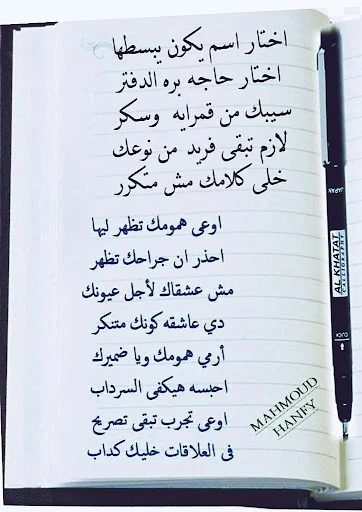 اختار اسم يكون يبسطها
اختار حاجه بره الدفتر
سيبك من قمرايه وسكر
لازم تبقى فريد من نوعك
خلى كلامك مش متكرر
اوعى همومك تظهر ليها
احذر ان جراحك تظهر
مش عشقاك لأجل عيونك
دي عاشقه كونك متنكر
أرمي همومك ويا ضميرك
احبسه هيكفى السرداب
اوعى تجرب تبقى تصريح
فى العلاقات خليك كداب
MAHMOUD
HANFY
JAPAN
AL KHATAT
CALLIGRAPHY
CLICK